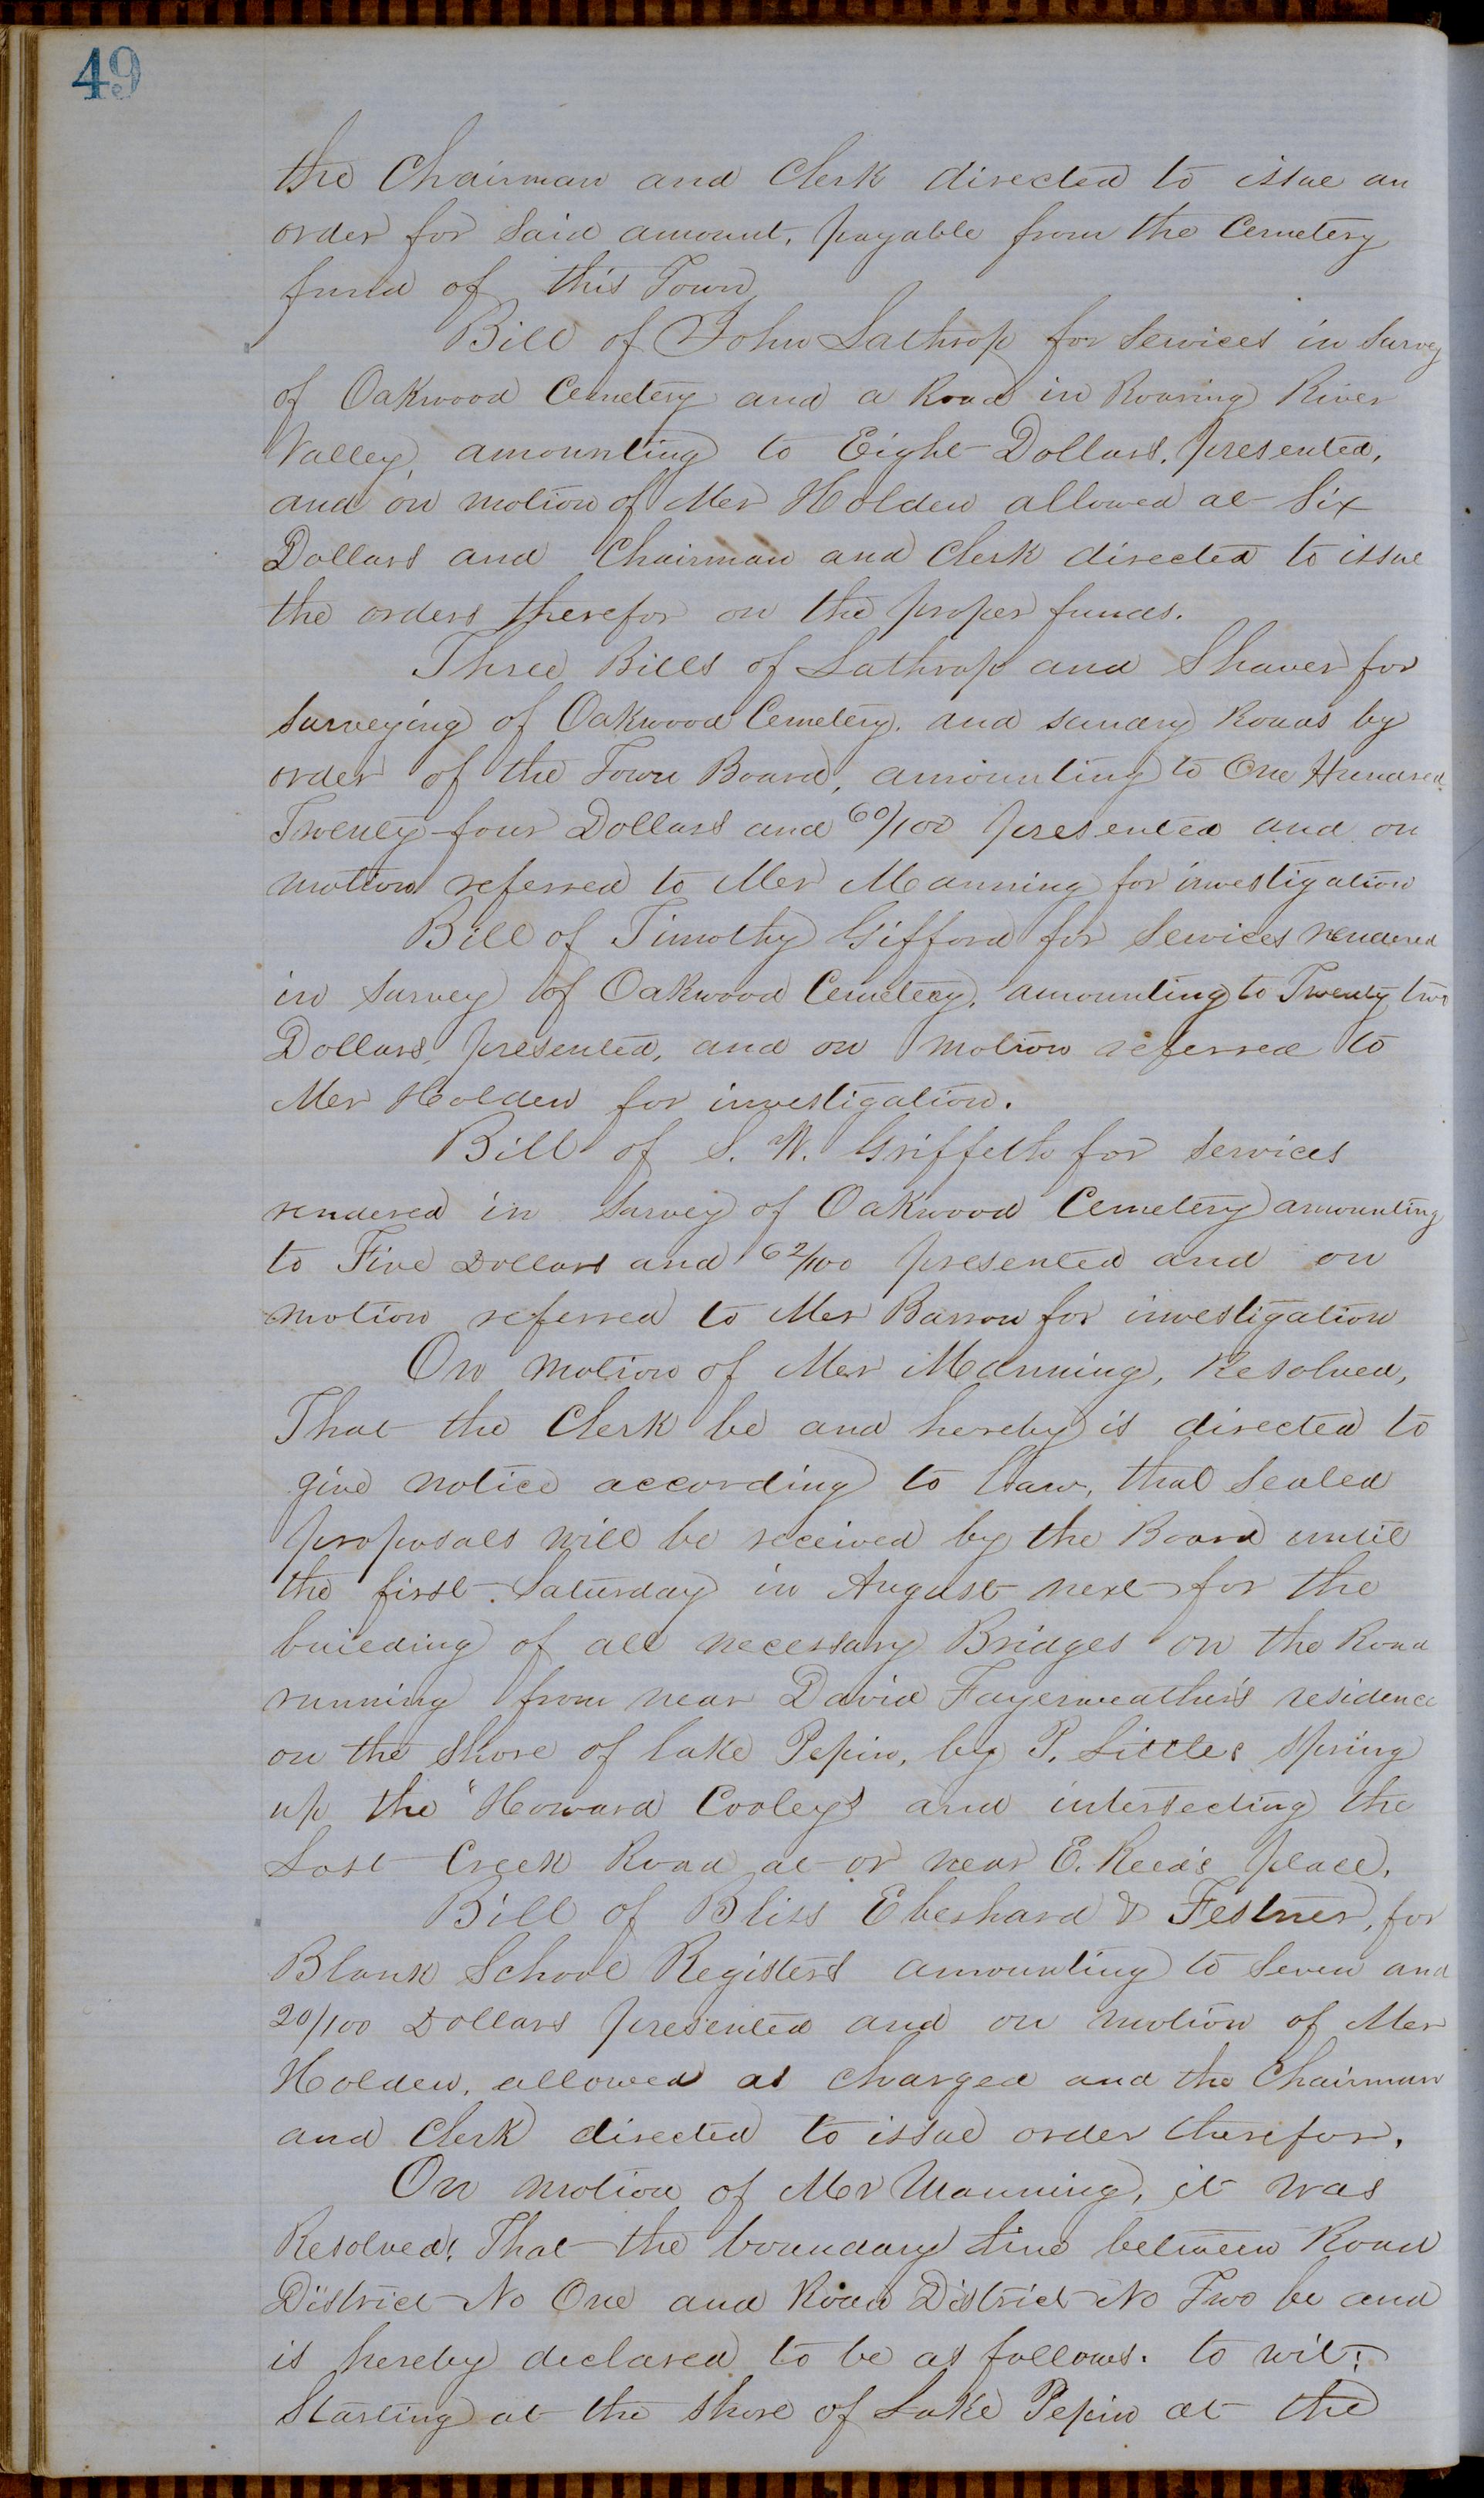 49
the Chairman and Clerk directed to issue an
order for said amount, payable from the Cemetery
fund of this Town
Bill of John Lathrop for services in survey
of Oakwood Cemetery and a Road in Roaring River
Valley, amounting to Eight Dollars, presented,
and on motion of Mr Holden allowed at Six
Dollars and Chairman and Clerk directed to issue
the orders therefor on the proper funds.
Three Bills of Lathrop and Shaver for
surveying of Oakwood Cemetery, and sundry Roads by
order of the Town Board, amounting to One Hundred
Twenty-four Dollars and 60/100 presented and on
motion referred to Mr Manning for investigation
Bill of Timothy Gifford for services rendered
in survey of Oakwood Cemetery, amounting to Twenty two
Dollars, presented, and on motion referred to
Mr Holden for investigation.
Bill of S. W. Griffeth for services
rendered in survey of Oakwood Cemetery amounting
to Five Dollars and 62/100 presented and on
motion referred to Mr Barron for investigation
On motion of Mr Manning, Resolved,
That the Clerk be and hereby is directed to
give notice according to law, that sealed
proposals will be received by the Board until
the first Saturday in August next for the
building of all necessary Bridges on the Road
running from near David Fayerweather's residence
on the shore of lake Pepin, by P. Littles spring
up the "Howard Cooley" and intersecting the
Lost Creek Road at or near E. Reed's place.
Bill of Bliss Eberhard & Festner, for
Blank School Registers amounting to Seven and
20/100 Dollars presented and on motion of Mr
Holden, allowed as charged and the Chairman
and Clerk directed to issue order therefor.
On motion of Mr Manning, it was
Resolved, That the boundary line between Road
District No One and Road District No Two be and
is hereby declared to be as follows. to wit:
Starting at the shore of Lake Pepin at the